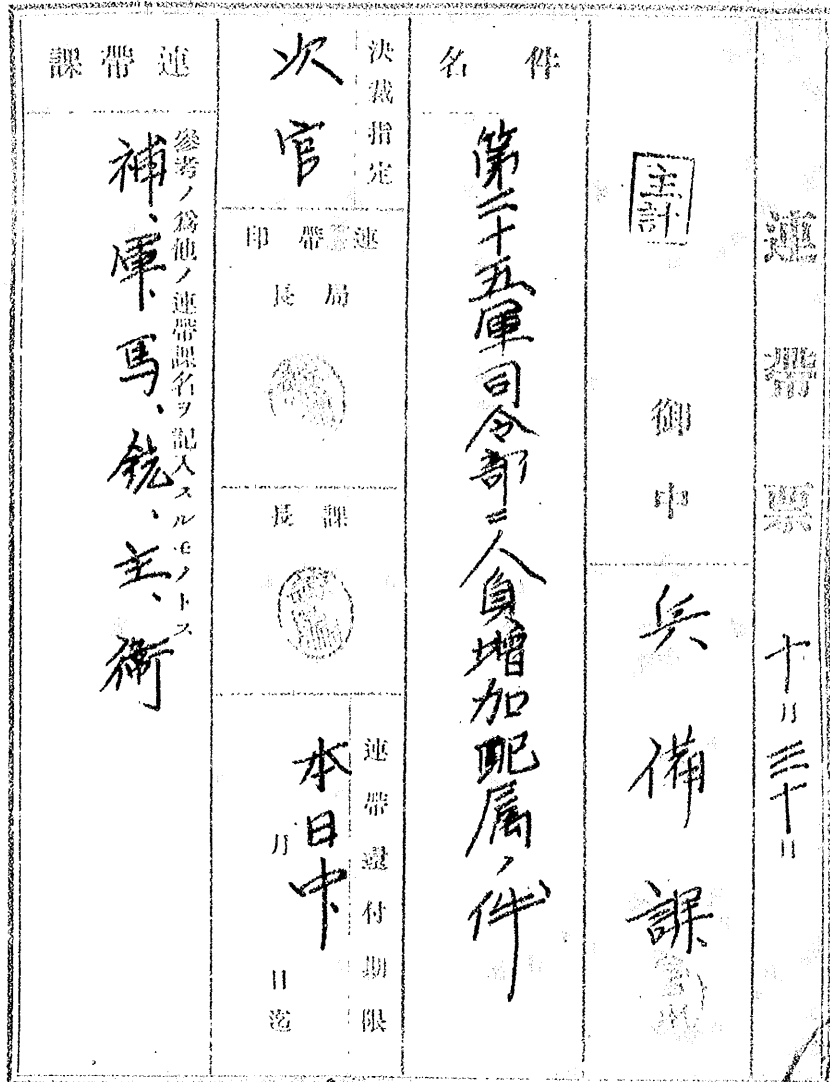 連帶票 十月三十日
主計 御中
兵備課
件名
第二十五軍司令部ニ人員増加配属ノ件
決裁指定
次官
連帶印
局長
課長
連帶還付期限
本日中
月 日迄
連帶課
參考ノ爲他ノ連帶課名ヲ記入スルモノトス
補、軍、馬、銃、主、衛